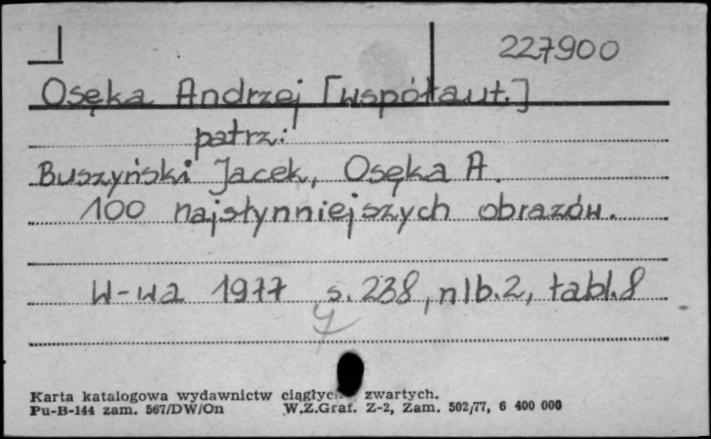 227900
Osęka Andrzej [współaut.]
patrz:
Buszyński Jacek, Osęka A.
100 najsłynniejszych obrazów.
W-wa 1977 s. 238, nlb. 2, tabl. 8
Karta katalogowa wydawnictw ciągłych zwartych.
Pu-B-144 zam. 567/DW/On W.Z.Graf. Z-2, Zam. 502/77, 6 400 000